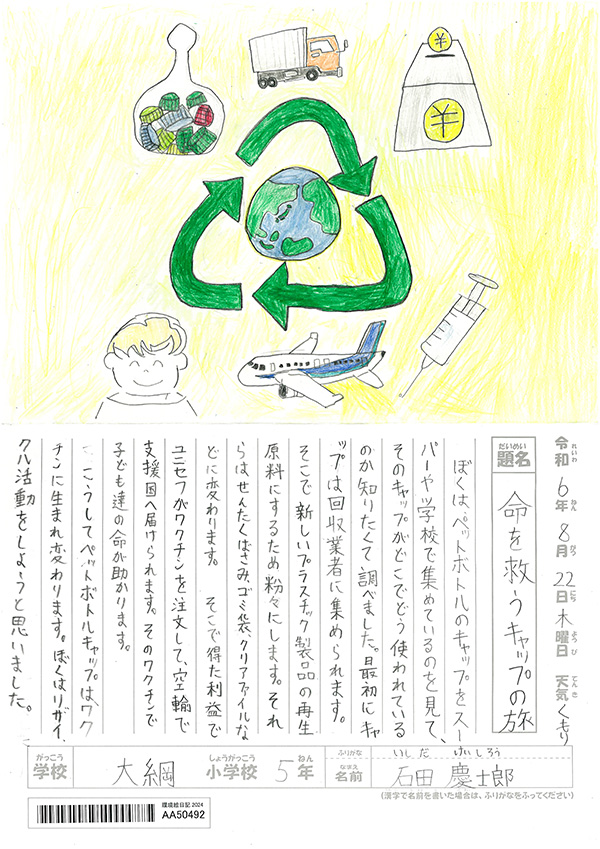 ¥
¥
令和6年8月22日木曜日 天気 くもり
れいわ ねん がつ にち ようび てんき
だいめい
題名
命を救うキャップの旅
ぼくは、ペットボトルのキャップをスー
パーや学校で集めているのを見て、
そのキャップがどこでどう使われている
のか知りたくて調べました。最初にキャ
ップは回収業者に集められます。
そこで新しいプラスチック製品の再生
原料にするため粉々にします。それ
らはせんたくばさみ、ゴミ袋、クリアファイルな
どに変わります。 そこで得た利益で
ユニセフがワクチンを注文して、空輸で
支援国へ届けられます。そのワクチンで
子ども達の命が助かります。
こうしてペットボトルキャップはワク
チンに生まれ変わります。ぼくはリサイ
クル活動をしようと思いました。
がっこう しょうがっこう ねん
学校 大綱 小学校 5年
ふりがな いしだ けいしろう
なまえ
名前 石田 慶士郎
(漢字で名前を書いた場合は、ふりがなをふってください)
環境絵日記 2024
AA50492